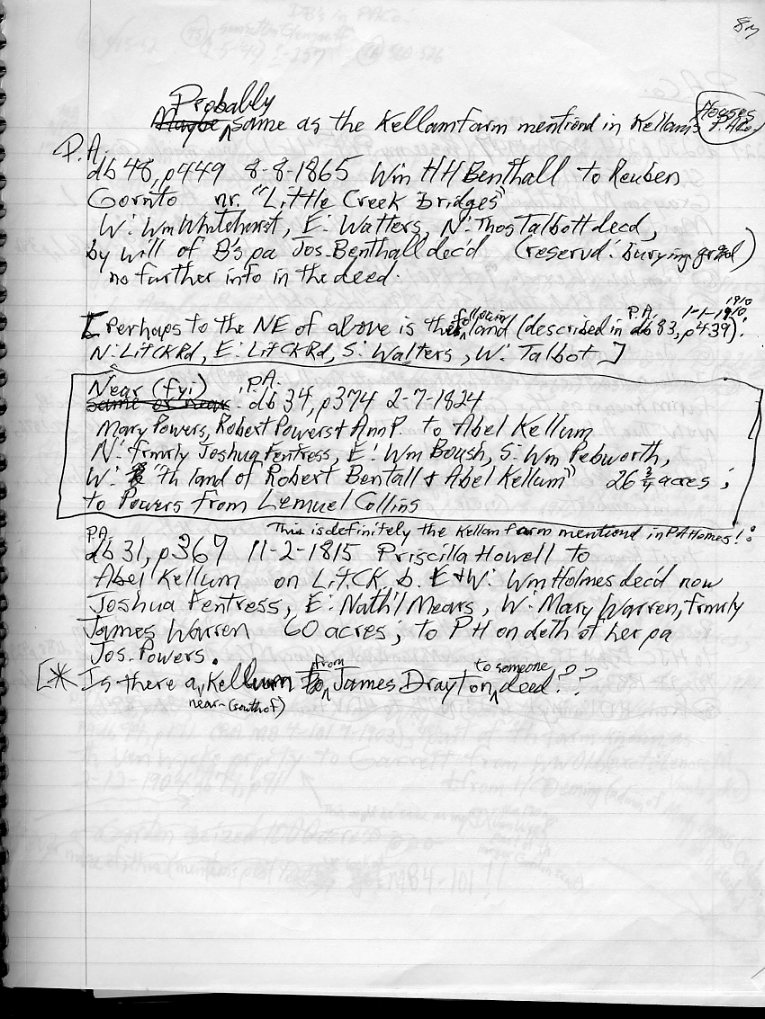 83
Probably
Maybe ^ same as the Kellam farm mentiond in Kellam's Houses P.ACo
P.A.
db 48, p449 8-8-1865 Wm HH Benthall to Reuben
Gornto nr. "Little Creek Bridges"
W: Wm Whitehurst, E: Watters, N: Thos Talbott decd,
by will of B's pa Jos. Benthall dec'd (reservd: burying grnd)
no further info in the deed.
[ Perhaps to the NE of above is the following land (described in P.A. db 83, p439) 1-1-1910 1910:
N: LitCkRd, E: LitCkRd, S: Walters, W: Talbot ]
Near (fyi)
same or near : P.A. db 34, p374 2-7-1824
Mary Powers, Robert Powers & Ann P. to Abel Kellum
N: frmrly Joshua Fentress, E: Wm Boush, S: Wm Pebworth,
W: "th land of Robert Bentall & Abel Kellum" 26 3/4 acres ;
to Powers from Lemuel Collins
This is definitely the Kellam farm mentiond in PA Homes!:
P.A.
db 31, p367 11-2-1815 Priscilla Howell to
Abel Kellum on LitCk, b. E&W: Wm Holmes dec'd now
Joshua Fentress, E: Nath'l Mears, W: Mary Warren, frmrly
James Warren 60 acres, to PH on deth of her pa
Jos. Powers.
[* Is there a ^ near (south of) Kellum to ^ from James Drayton ^ to someone deed??